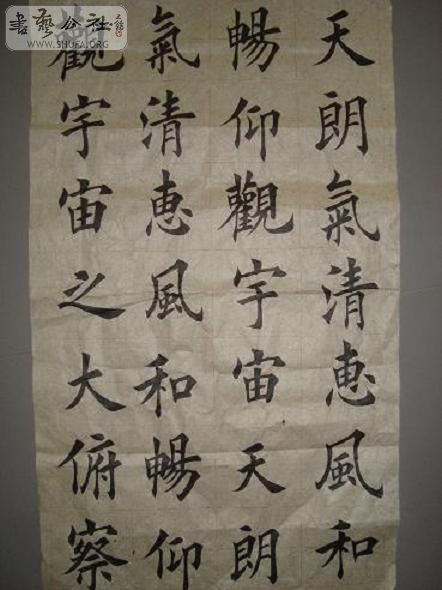 天朗氣清惠風和
暢仰觀宇宙天朗
氣清惠風和暢仰
觀宇宙之大俯察
書藝公社
WWW.SHUFA.ORG